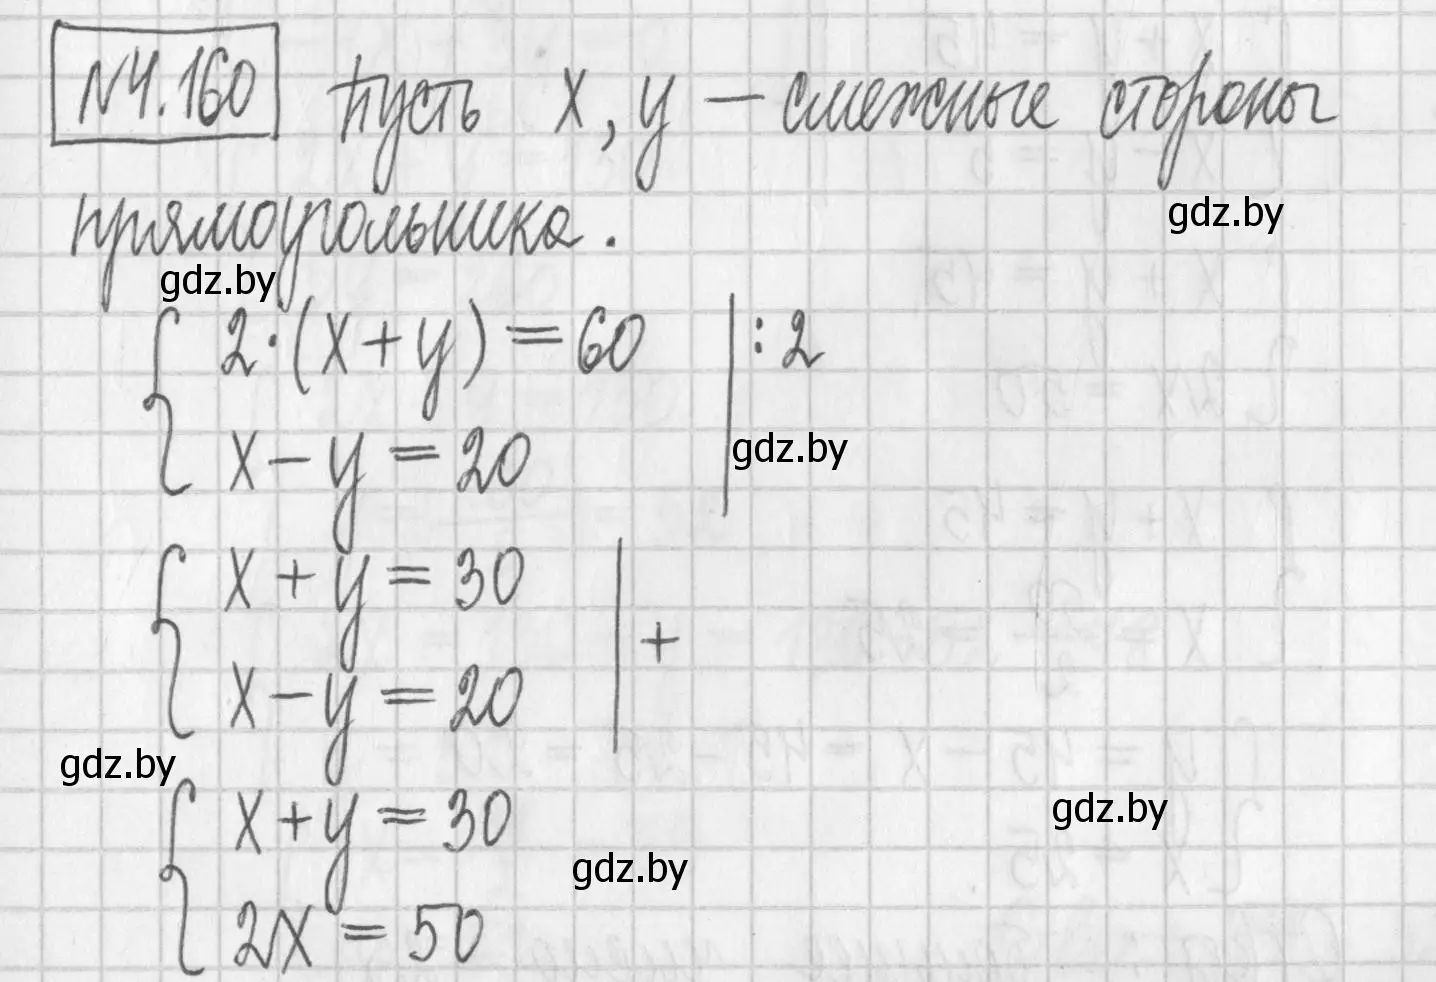 №4.160 Пусть x, y – смежные стороны
прямоугольника.
gdz.by
gdz.by
2·(x+y)=60 | :2
x−y=20
gdz.by
x+y=30
x−y=20 | +
gdz.by
x+y=30
gdz.by
gdz.by
2x=50